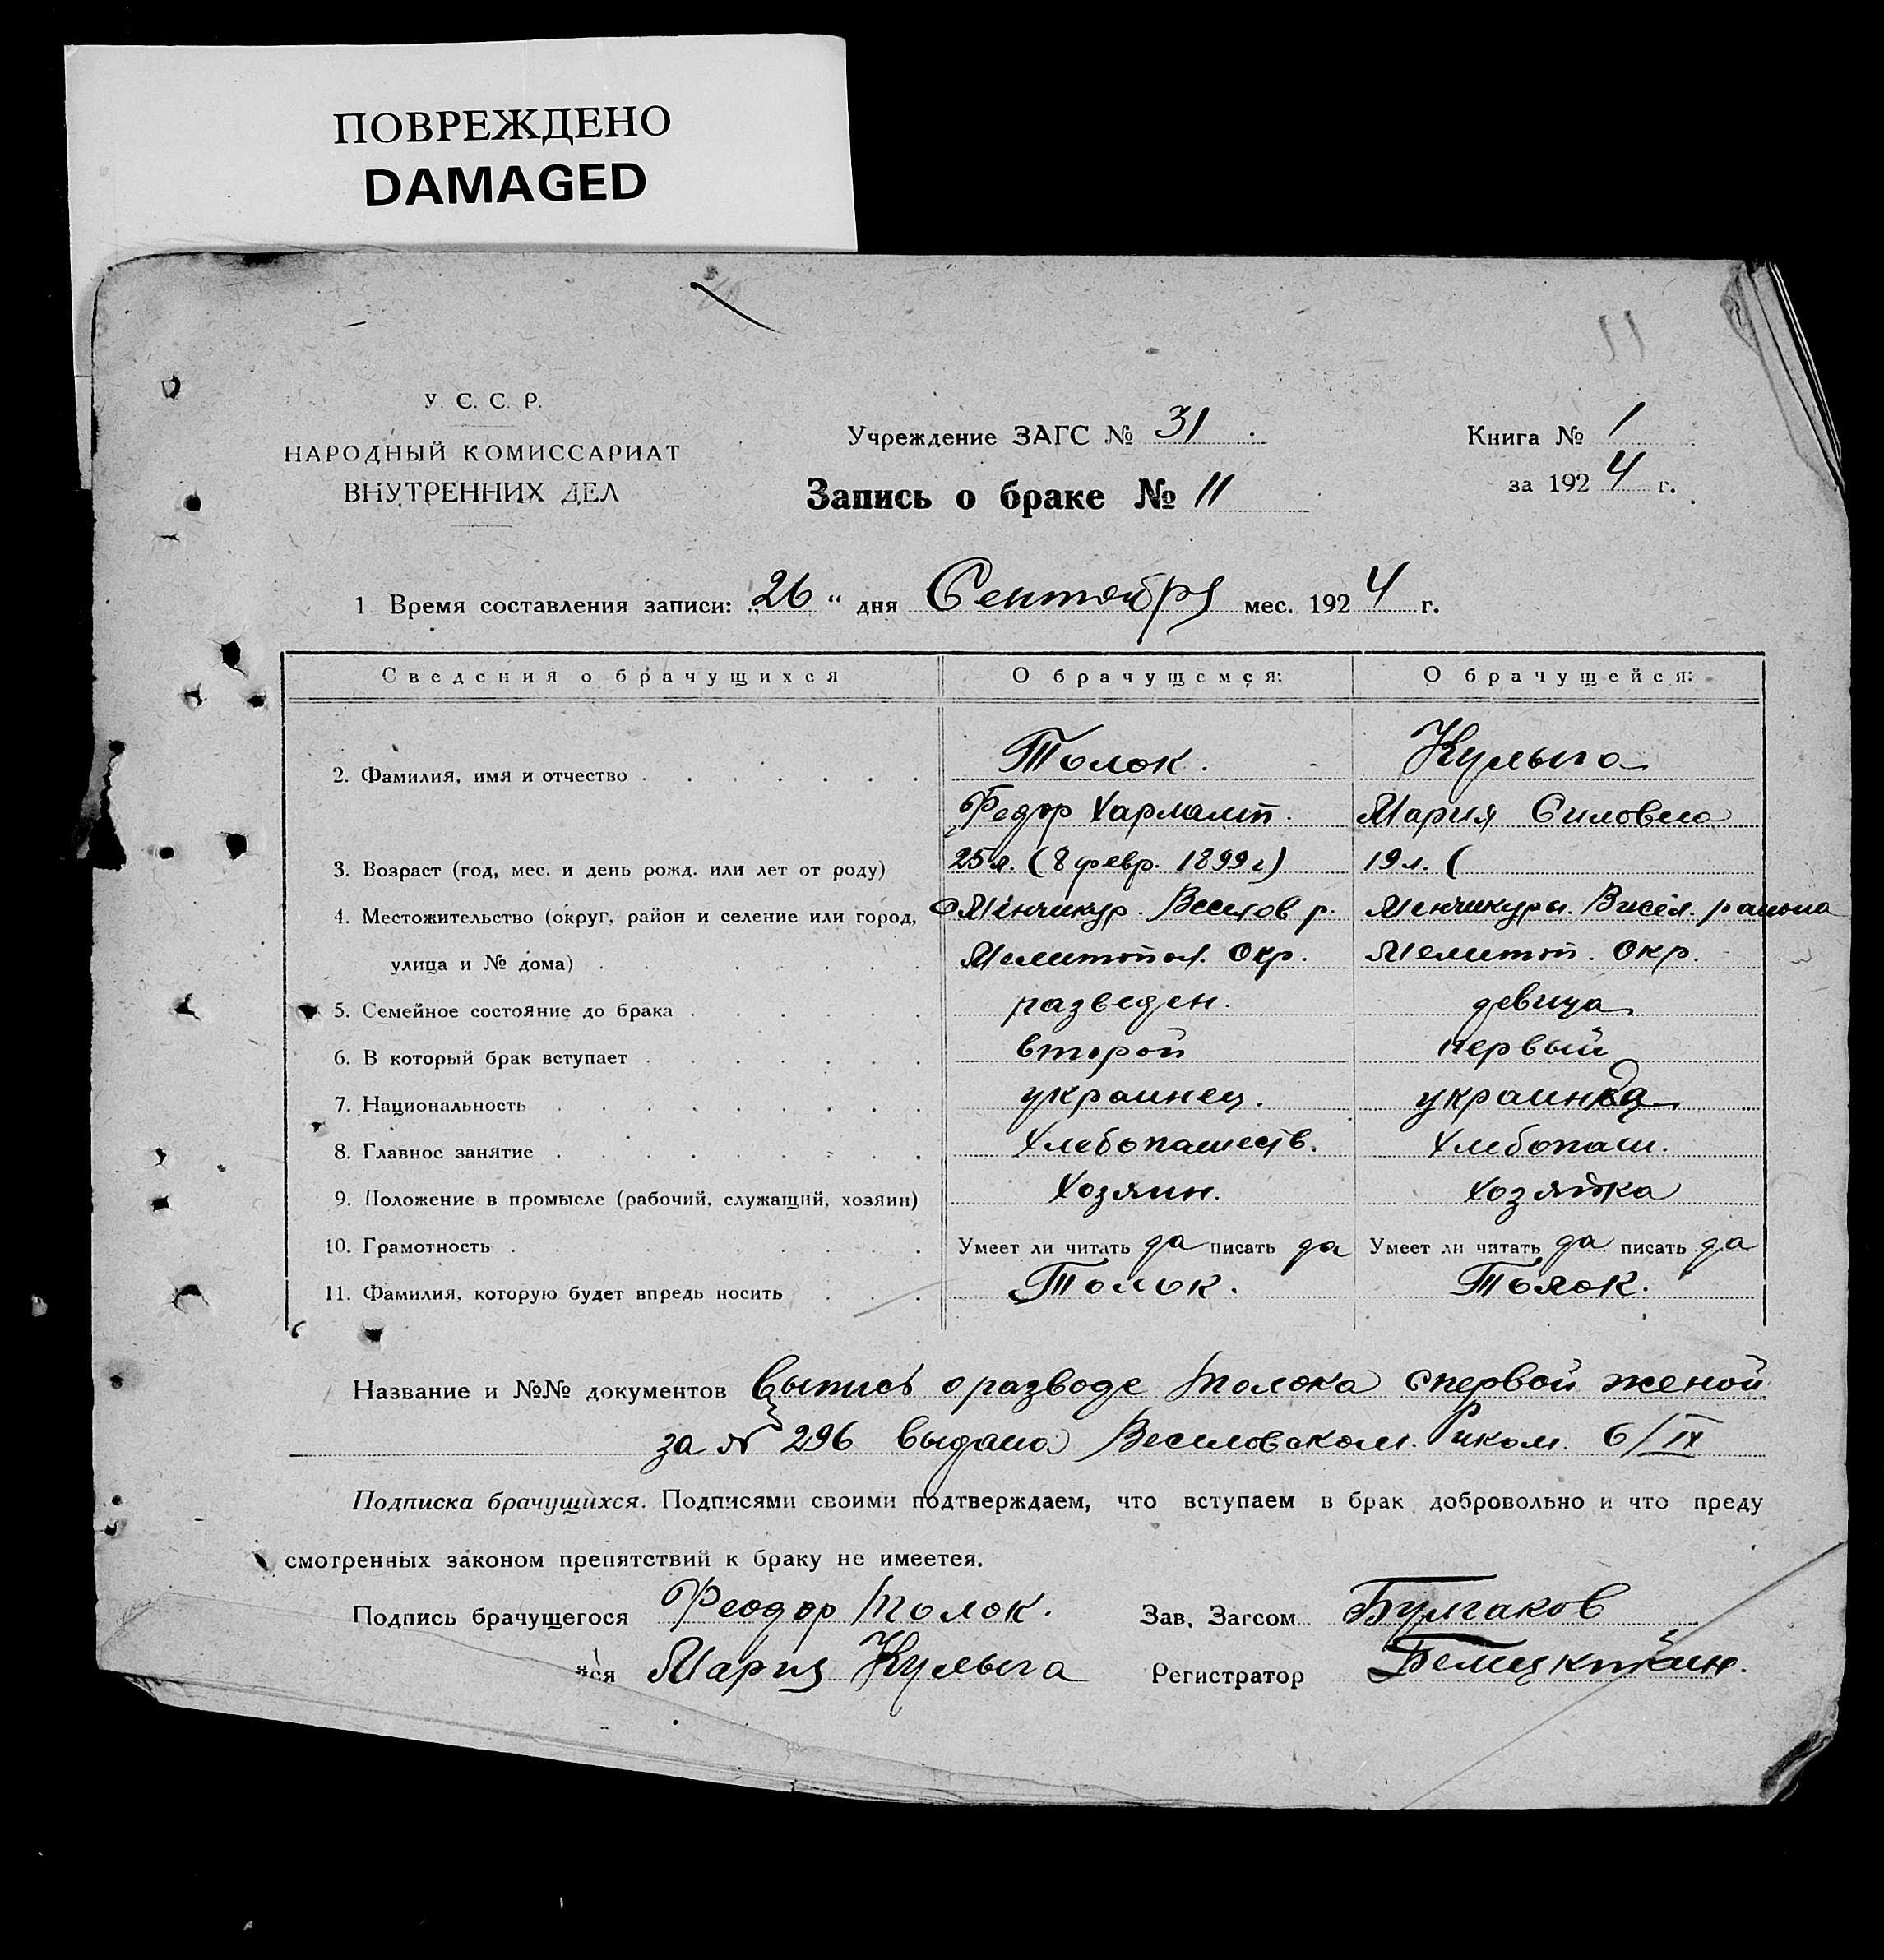 ПОВРЕЖДЕНО
DAMAGED
11
У. С. С. Р.
НАРОДНЫЙ КОМИССАРИАТ
ВНУТРЕННИХ ДЕЛ
Учреждение ЗАГС № 31
Запись о браке № 11
Книга № 1
за 1924 г.
1 Время составления записи: „26“ дня Сентября мес. 1924 г.
Сведения о брачущихся О брачущемся: О брачущейся:
2. Фамилия, имя и отчество Толок. Кулыга
Федор Харламп. Мария Силовна
3. Возраст (год, мес. и день рожд. или лет от роду) 25 л. (8 февр. 1899 г) 19 л. (
4. Местожительство (округ, район и селение или город, с Менчикур. Веселов р. Менчикуры. Висел. района
улица и № дома) Мелитопол. Окр. Мелитоп. Окр.
5. Семейное состояние до брака разведен. девица
6. В который брак вступает второй первый
7. Национальность украинец. украинка
8. Главное занятие Хлебопашеств. Хлебопаш.
9. Положение в промысле (рабочий, служащий, хозяин) Хозяин. Хозяйка
10. Грамотность Умеет ли читать да писать да Умеет ли читать да писать да
11. Фамилия, которую будет впредь носить Толок. Толок.
Название и №№ документов Выпись о разводе Толока с первой женой
за № 296 выдана Веселовском. Риком. 6/IX
Подписка брачущихся. Подписями своими подтверждаем, что вступаем в брак добровольно и что преду
смотренных законом препятствий к браку не имеетея.
Подпись брачущегося Феодор Толок. Зав. Загсом Булгаков
яся Мария Кулыга Регистратор